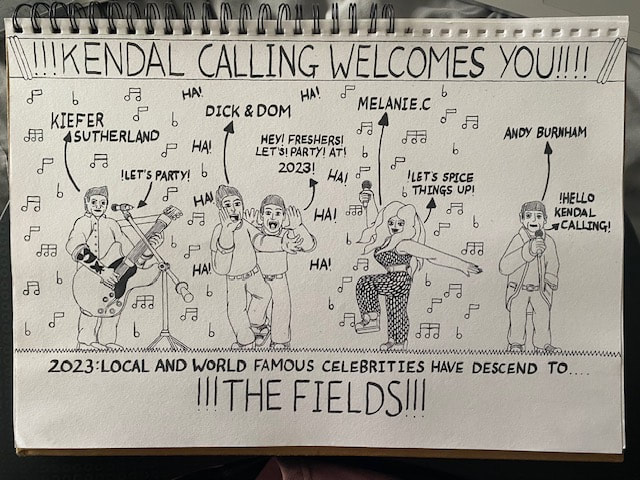 !!!KENDAL CALLING WELCOMES YOU!!!!
HA!
HA!
KIEFER
SUTHERLAND
DICK & DOM
MELANIE.C
ANDY BURNHAM
HA!
HEY! FRESHERS!
LET'S! PARTY! AT!
2023!
!LET'S PARTY!
HA!
!LET'S SPICE
THINGS UP!
HA!
HA!
!HELLO
KENDAL
CALLING!
HA!
HA!
2023:LOCAL AND WORLD FAMOUS CELEBRITIES HAVE DESCEND TO....
!!!THE FIELDS!!!